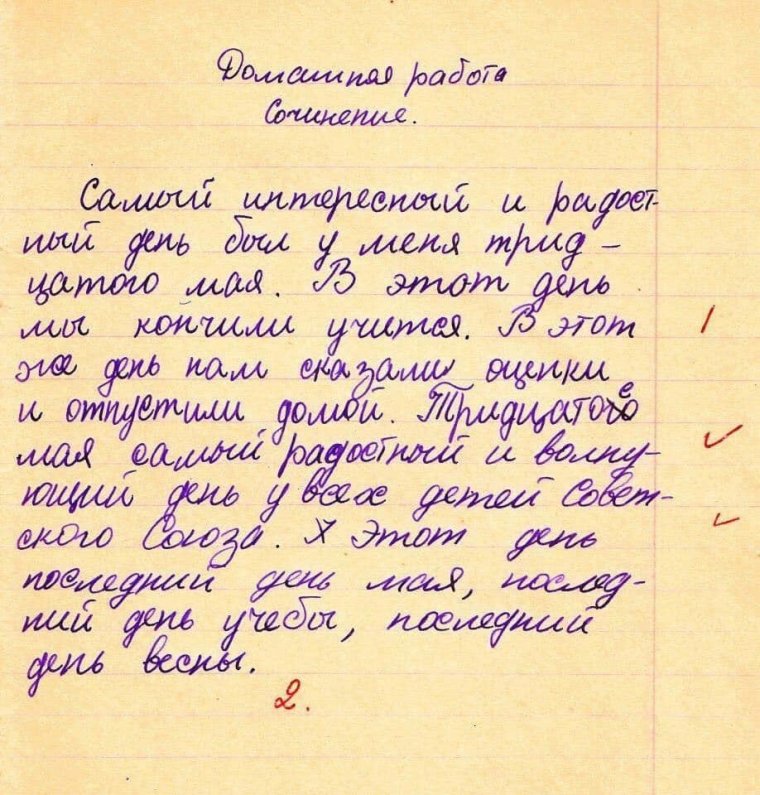 Домашняя работа
Сочинение.
Самый интересный и радост-
ный день был у меня трид-
цатого мая. В этот день
мы кончили учится. В этот
же день нам сказали оценки
и отпустили домой. Тридцатое
мая самый радостный и волну-
ющий день у всех детей Совет-
ского Союза. Этот день
последний день мая, послед-
ний день учебы, последний
день весны.
2.